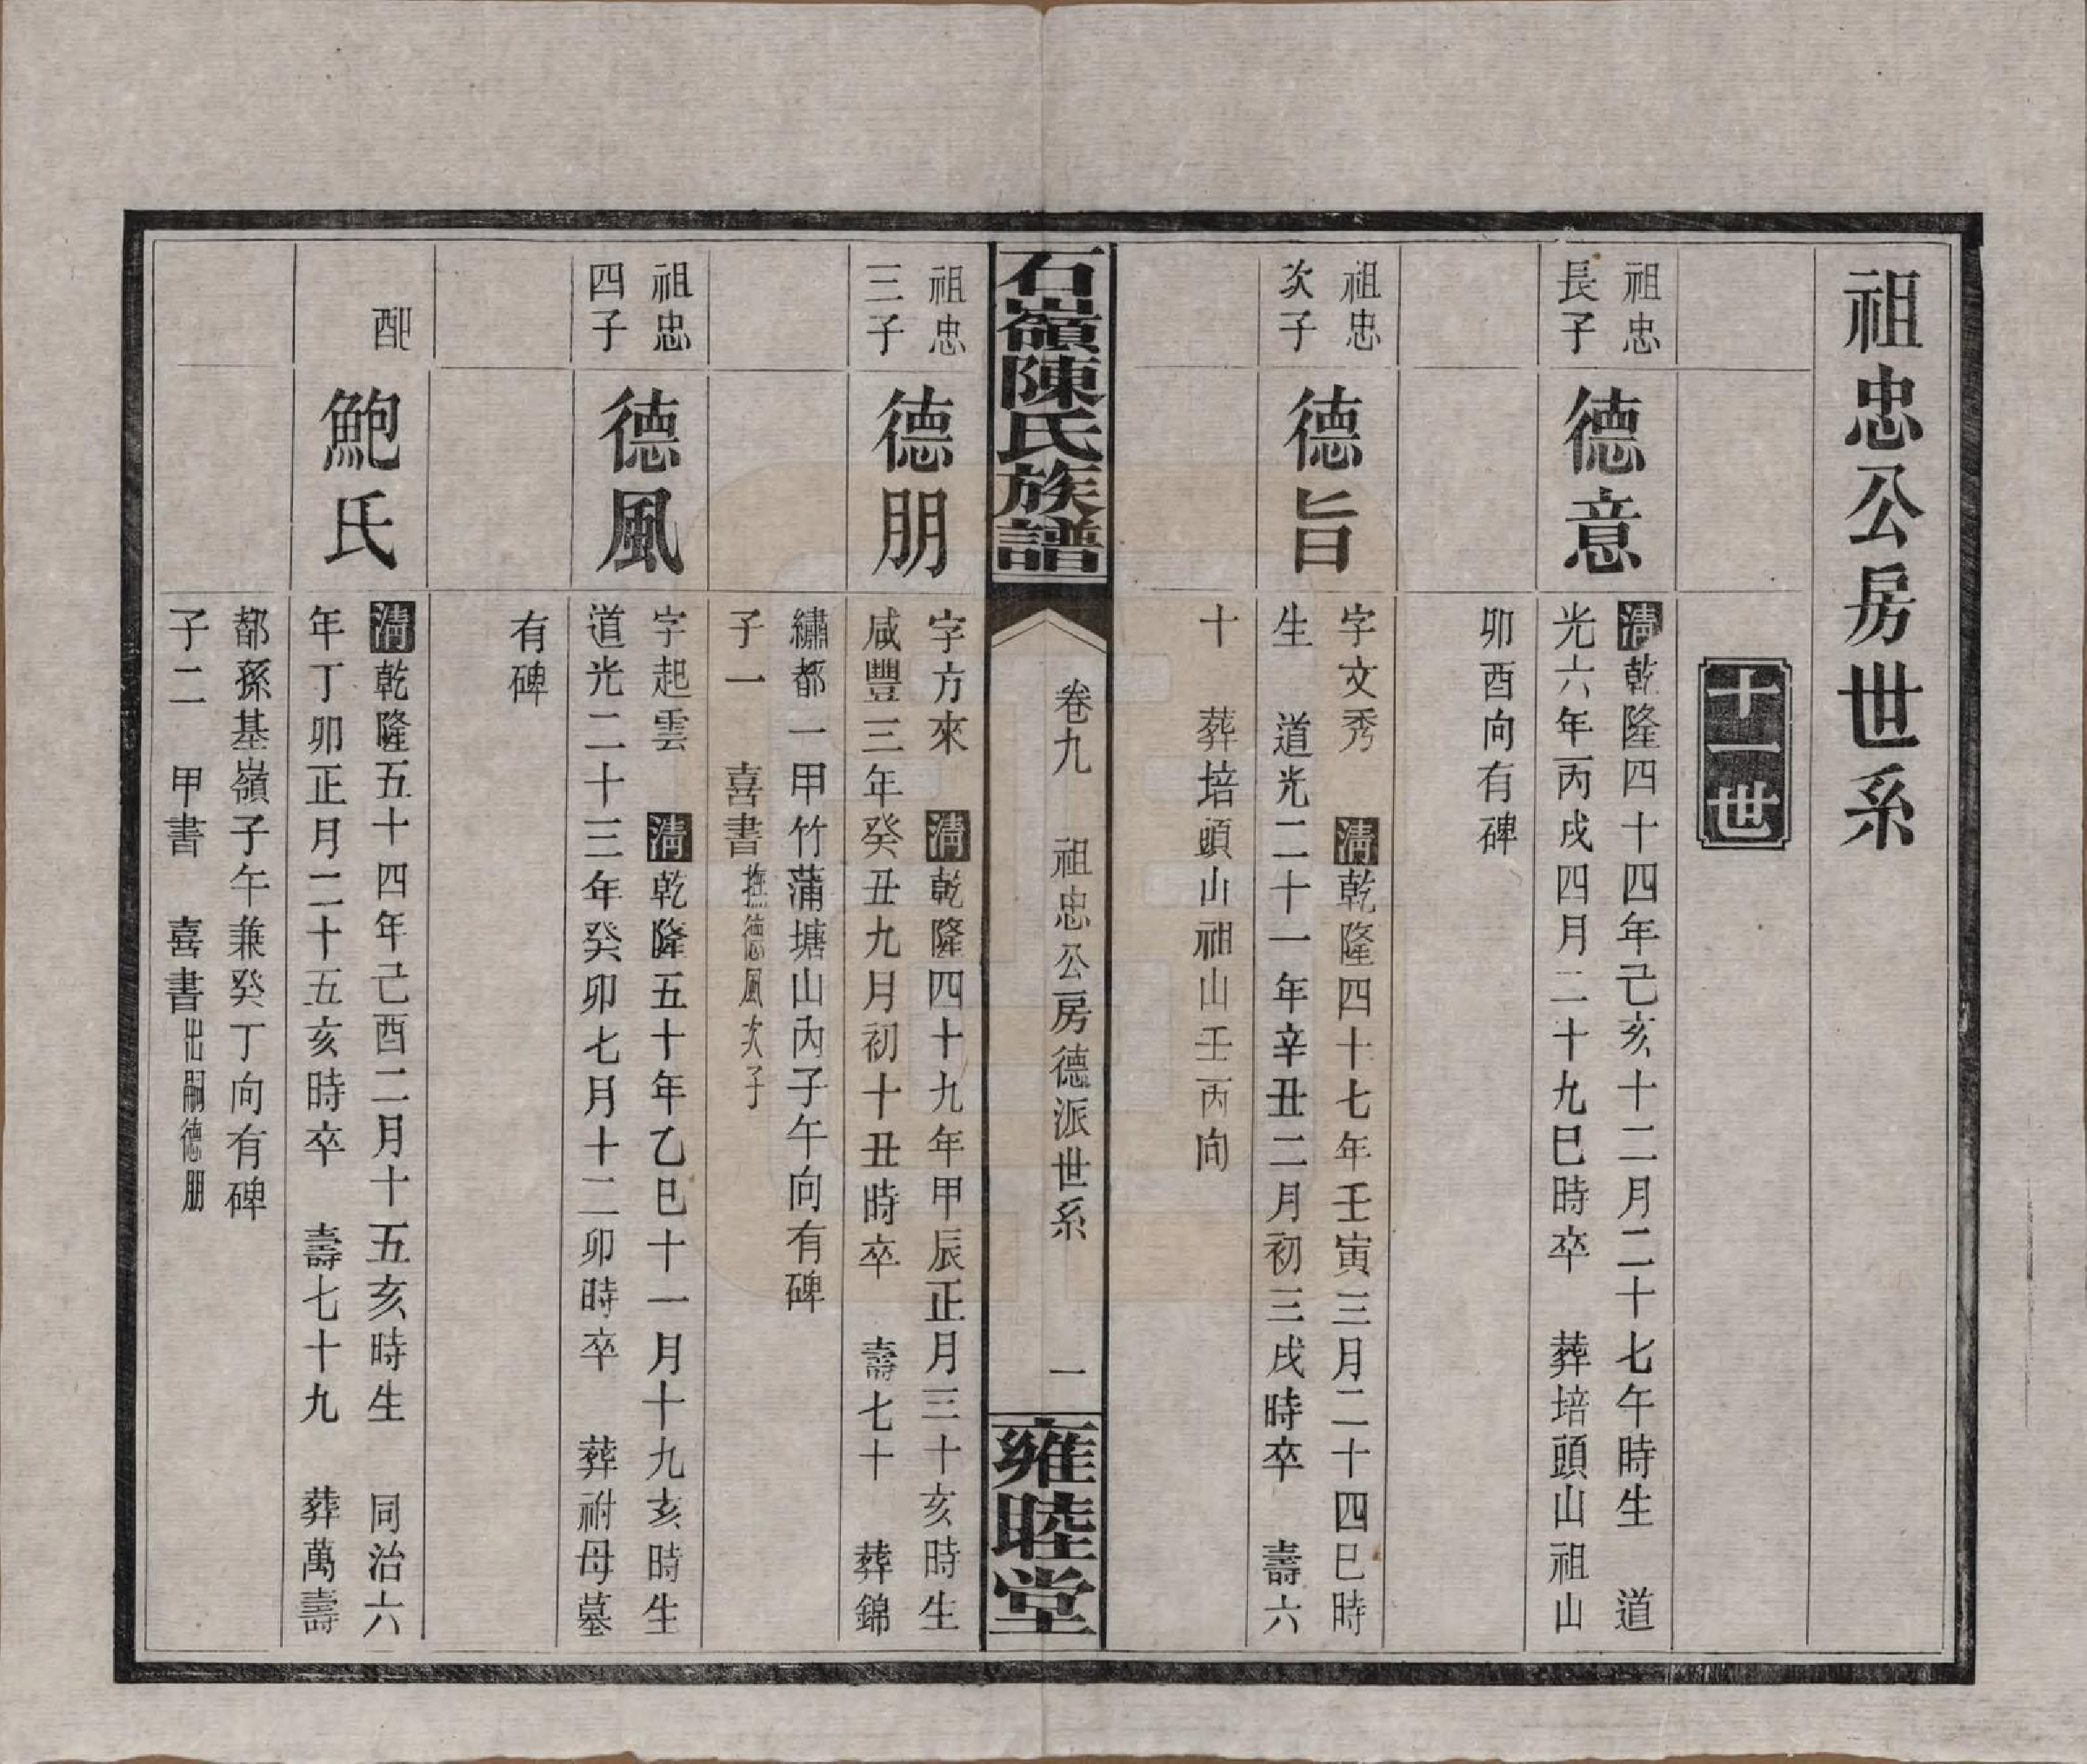 祖忠公房世系
十一世
祖忠
長子
德意
清乾隆四十四年己亥十二月二十七午時生　道
光六年丙戌四月二十九巳時卒　葬培頭山祖山
卯酉向有碑
祖忠
次子
德旨
字文秀　清乾隆四十七年壬寅三月二十四巳時
生　道光二十一年辛丑二月初三戌時卒　壽六
十　葬培頭山祖山壬丙向
石嶺陳氏族譜
卷九　祖忠公房德派世系　一
雍睦堂
祖忠
三子
德朋
字方來　清乾隆四十九年甲辰正月三十亥時生
咸豐三年癸丑九月初十丑時卒　壽七十　葬錦
繡都一甲竹蒲塘山內子午向有碑
子一　喜書撫德風次子
祖忠
四子
德風
字起雲　清乾隆五十年乙巳十一月十九亥時生
道光二十三年癸卯七月十二卯時卒　葬祔母墓
有碑
配
鮑氏
清乾隆五十四年己酉二月十五亥時生　同治六
年丁卯正月二十五亥時卒　壽七十九　葬萬壽
都孫基嶺子午兼癸丁向有碑
子二　甲書　喜書出嗣德朋